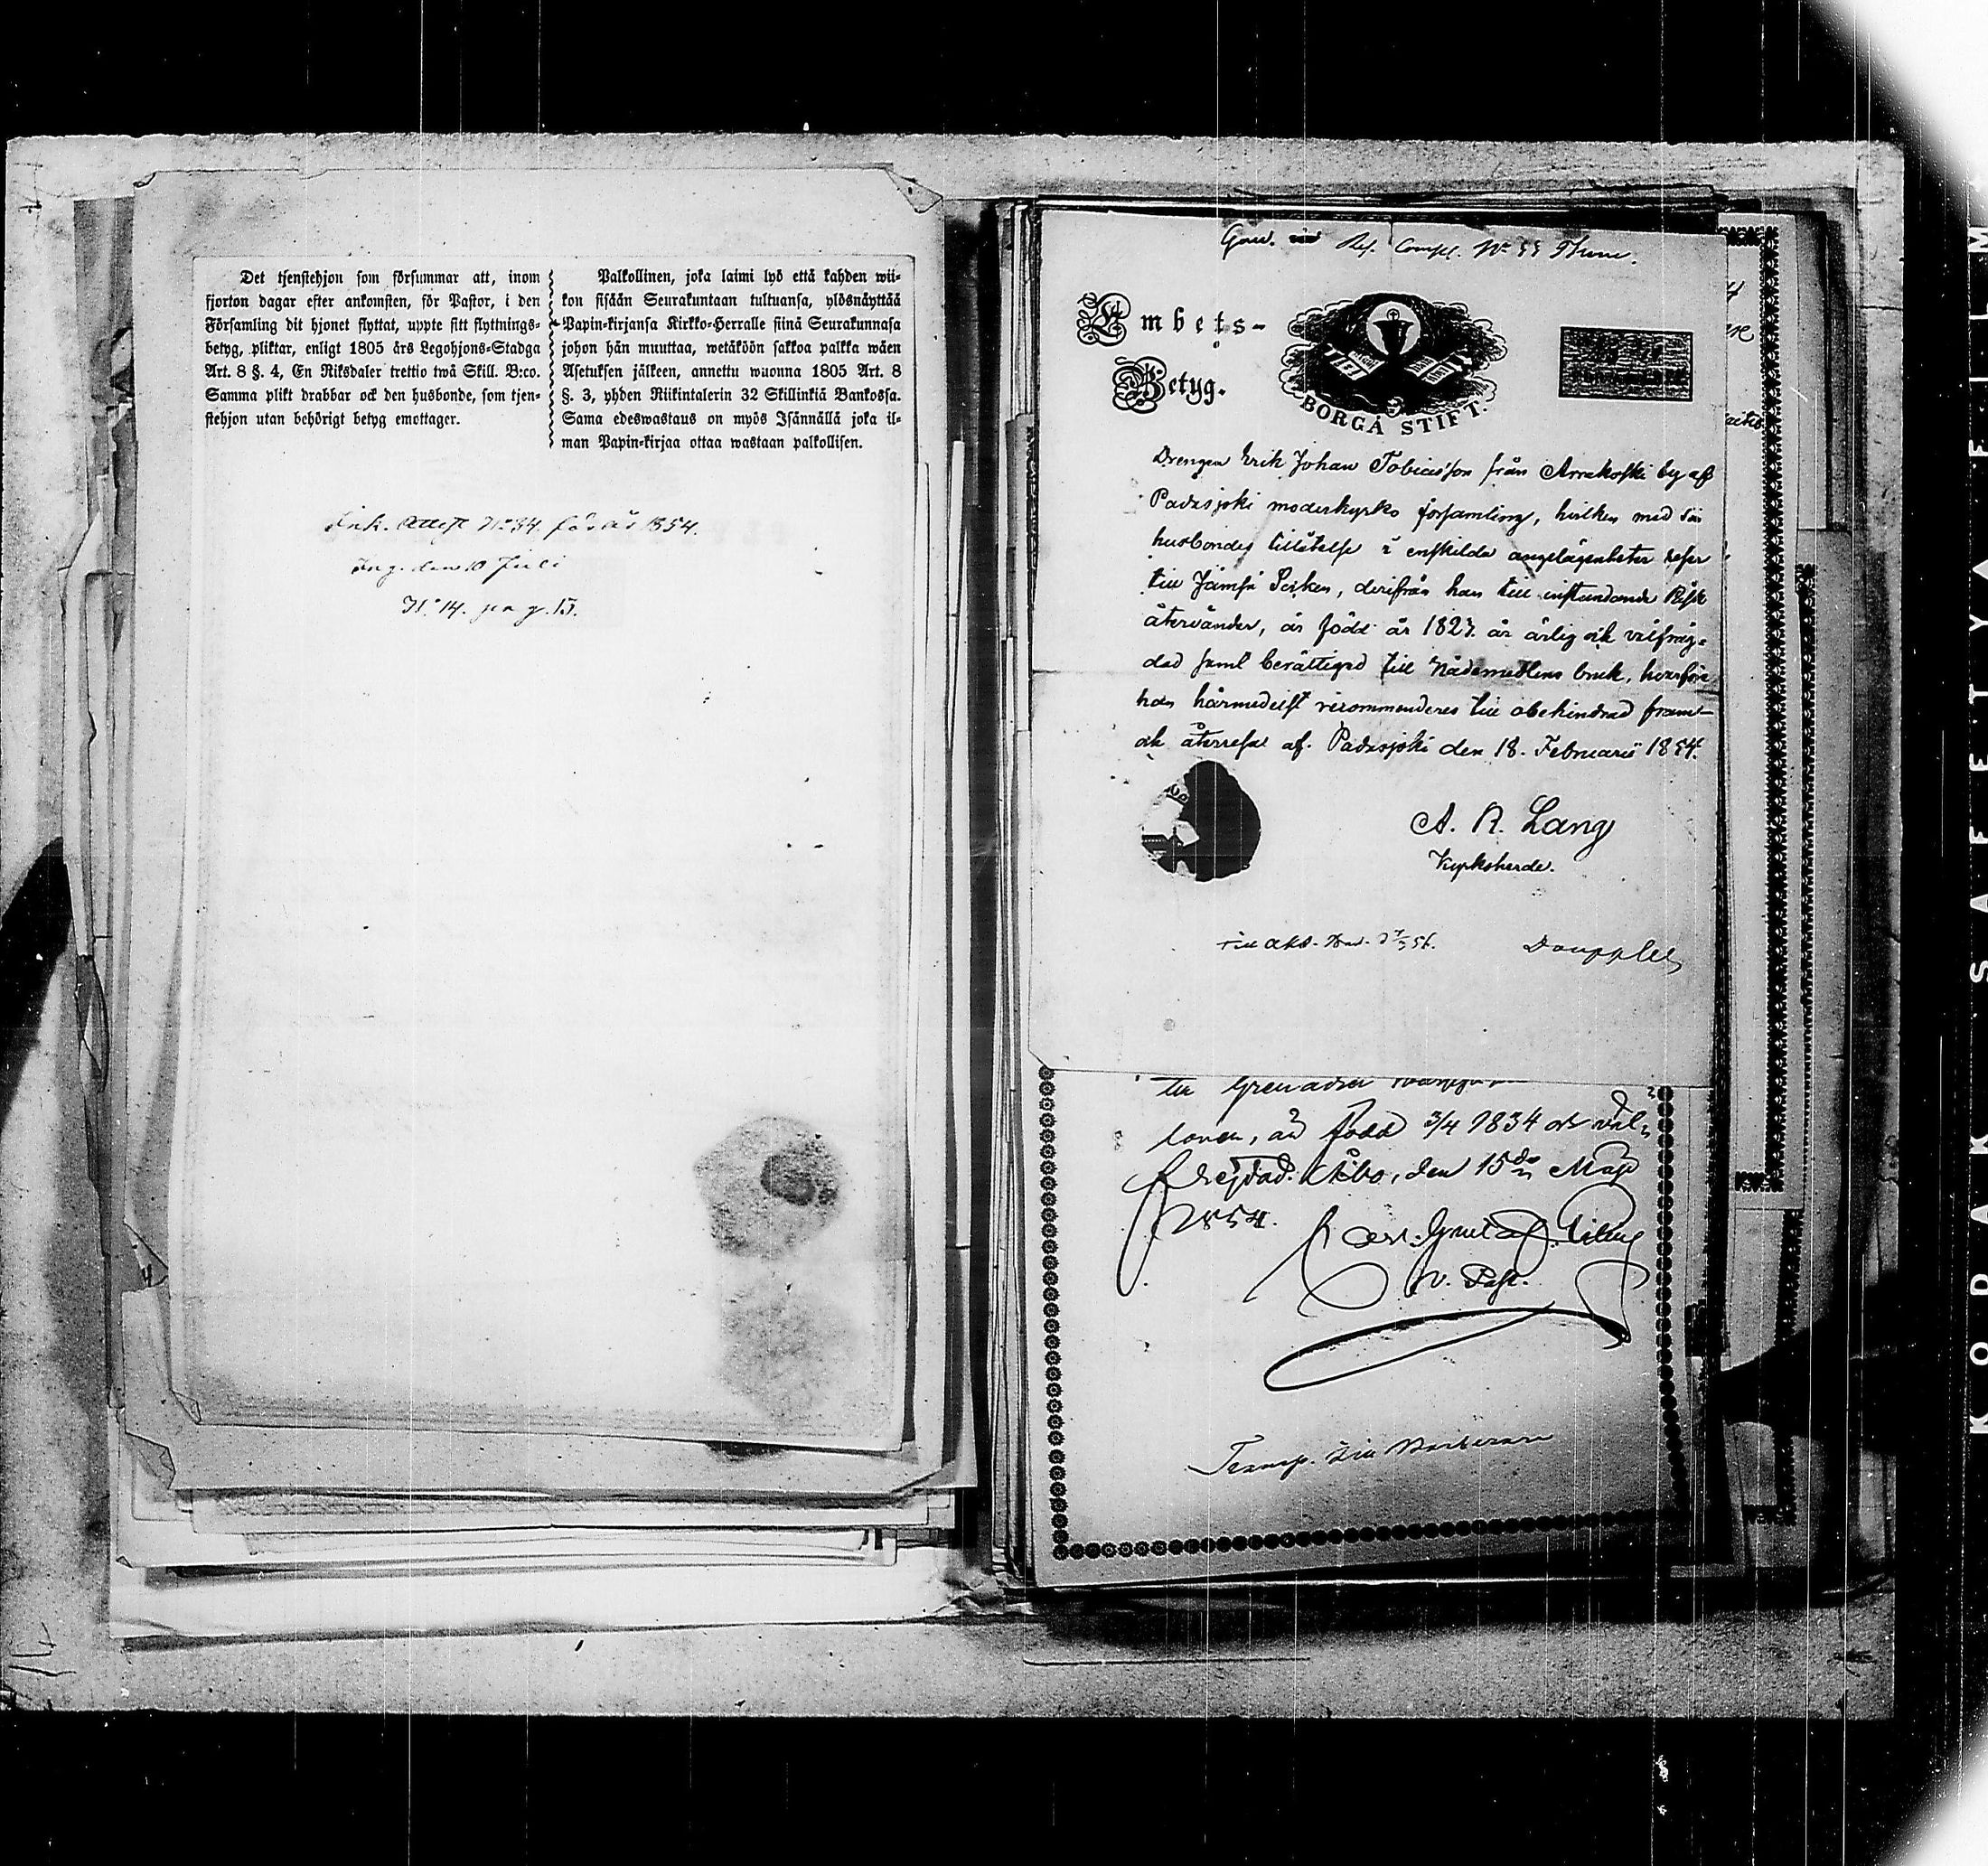 Det tjenstehjon som försummar att, inom
fjorton dagar efter ankomsten, för Pastor, i den
Församling dit hjonet flyttat, uppte sitt flyttnings-
betyg, pliktar, enligt 1805 års Legohjons-Stadga
Art. 8 §. 4, En Riksdaler trettio twå Skill. B:co.
Samma plikt drabbar ock den husbonde, som tjen-
stehjon utan behörigt betyg emottager.
Palkollinen, joka laimi lyö että kahden wii-
kon sisään Seurakuntaan tultuansa, ylösnäyttää
Papin-kirjansa Kirkko-Herralle siinä Seurakunnasa
johon hän muuttaa, wetäköön sakkoa palkka wäen
Asetuksen jälkeen, annettu wuonna 1805 Art. 8
§. 3, yhden Riikintalerin 32 Skillinkiä Bankossa.
Sama edeswastaus on myös Isännällä joka il-
man Papin-kirjaa ottaa wastaan palkollisen.
Ink. Attest No 34. för år 1854.
Ing. den 10 Juli
No 14. pag. 15.
Embets-
Betyg.
BORGÅ STIFT.
Drengen Erik Johan Tobiasson från Arrakoski by af
Padasjoki moderkyrko församling, hvilken med sin
husbondes tillåtelse i enskilda angelägenheter reser
till Jämsä Socken, derifrån han till instundande Påsk
återvänder, är född år 1827. är ärlig och välfräg-
dad samt berättigad till Nådemedlens bruk, hvarföre
han härmedelst recommenderes till obehindrad fram-
och återresa af. Padasjoki den 18. Februarii 1854.
A. R. Lang
Kyrkoherde.
till Grenadier
är född 3/4 1834 och väl-
frejdad. Åbo, den 15de Maji
1854. Carl Gustaf
v. Past.
Transp. till
KODAK SAFETY FILM